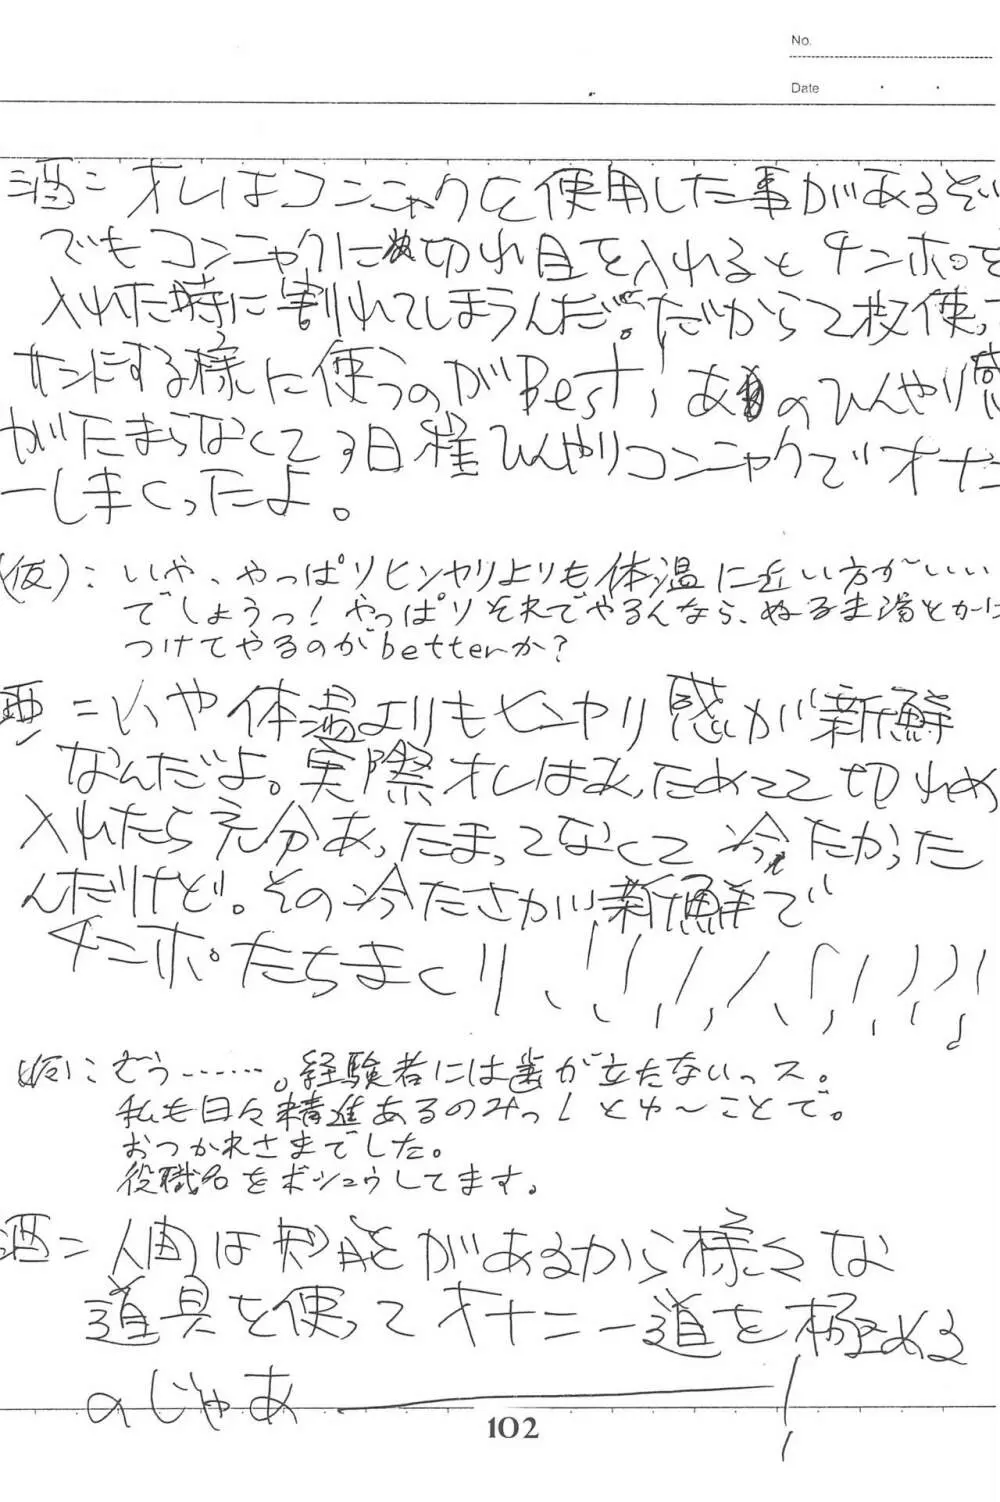 No.
Date
酒= オレはコンニャクを使用した事があるぞ
でもコンニャクに切れ目を入れるとチンポを
入れた時に割れてしまうんだ。だから2枚使っ
サンドする様に使うのがBest! あのひんやり感
がたまらなくて3日程ひんやりコンニャクでオナニ
ーしまくったよ。
(仮): いや、やっぱりヒンヤリよりも体温に近い方がいい
でしょうっ! やっぱりそれでやるんなら、ぬるま湯とかに
つけてやるのがbetterか?
酒=いや体温よりもヒンヤリ感が新鮮
なんだよ。実際オレはあっためてて切れめ
入れたら充分あったまってなくて冷たかった
んだけど。その冷たさが新鮮で
チンポたちまくり
(仮): むう……。経験者には歯が立たないっス。
私も日々精進あるのみっ! とゆ〜ことで。
おつかれさまでした。
役職名をボシュウしてます。
酒= 人間は知能があるから様々な
道具を使ってオナニー道を極める
のじゃあ――!
102